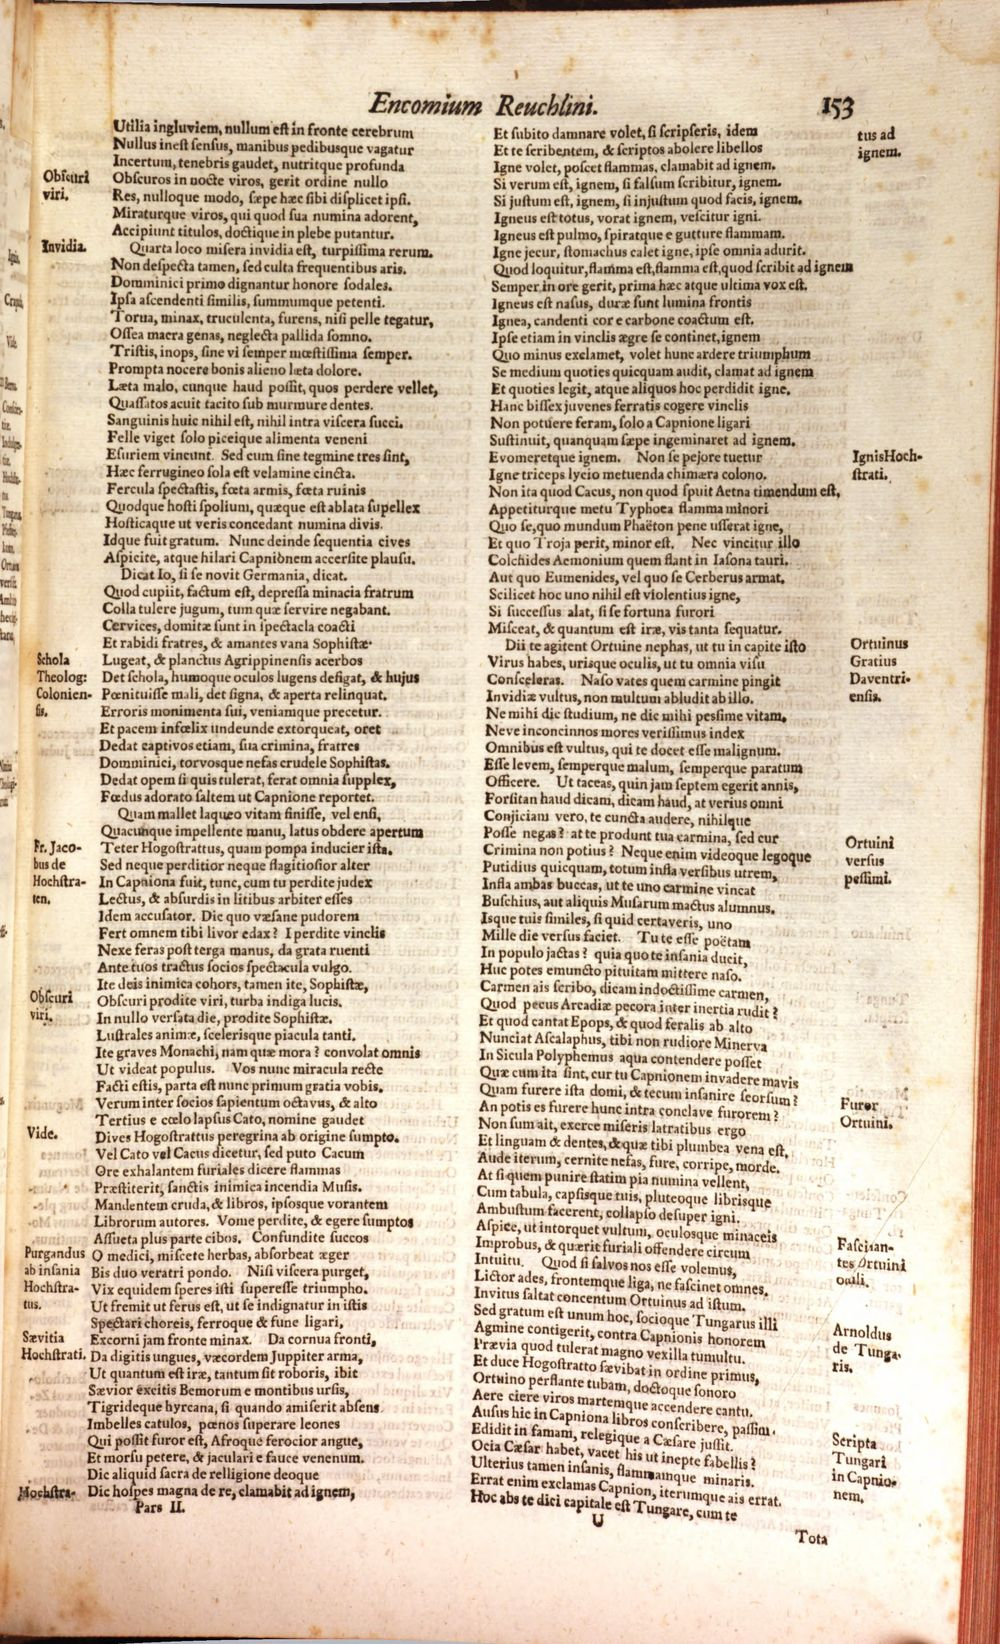 Encomium Reuchlini.
153
Utilia ingluviem, nullum est in fronte cerebrum
Nullus inest sensus, manibus pedibusque vagatur
Incertum, tenebris gaudet, nutritque profunda
Obscuros in nocte viros, gerit ordine nullo
Res, nulloque modo, sæpe hæc sibi displicet ipsi.
Miraturque viros, qui quod sua numina adorent,
Accipiunt titulos, doctique in plebe putantur.
Quarta loco misera invidia est, turpissima rerum.
Non despecta tamen, sed culta frequentibus aris.
Domminici primo dignantur honore sodales.
Ipsa ascendenti similis, summumque petenti.
Torua, minax, truculenta, furens, nisi pelle tegatur,
Ossea macra genas, neglecta pallida somno.
Tristis, inops, sine vi semper mœstissima semper.
Prompta nocere bonis alieno læta dolore.
Læta malo, cunque haud possit, quos perdere vellet,
Quassatos acuit tacito sub murmure dentes.
Sanguinis huic nihil est, nihil intra viscera succi.
Felle viget solo piceique alimenta veneni
Esuriem vincunt. Sed cum sine tegmine tres sint,
Hæc ferrugineo sola est velamine cincta.
Fercula spectastis, fœta armis, fœta ruinis
Quodque hosti spolium, quæque est ablata supellex
Hosticaque ut veris concedant numina divis.
Idque fuit gratum. Nunc deinde sequentia cives
Aspicite, atque hilari Capnionem accersite plausu.
Dicat Io, si se novit Germania, dicat.
Quod cupiit, factum est, depressa minacia fratrum
Colla tulere jugum, tum quæ servire negabant.
Cervices, domitæ sunt in spectacla coacti
Et rabidi fratres, & amantes vana Sophistæ
Lugeat, & planctus Agrippinensis acerbos
Det schola, humoque oculos lugens defigat, & hujus
Pœnituisse mali, det signa, & aperta relinquat.
Erroris monimenta sui, veniamque precetur.
Et pacem infœlix undeunde extorqueat, oret
Dedat captivos etiam, sua crimina, fratres
Domminici, torvosque nefas crudele Sophistas.
Dedat opem si quis tulerat, ferat omnia supplex,
Fœdus adorato saltem ut Capnione reportet.
Quam mallet laqueo vitam finisse, vel ensi,
Quacunque impellente manu, latus obdere apertum
Teter Hogostrattus, quam pompa inducier ista.
Sed neque perditior neque flagitiosior alter
In Capniona fuit, tunc, cum tu perdite judex
Lectus, & absurdis in litibus arbiter esses
Idem accusator. Dic quo væsane pudorem
Fert omnem tibi livor edax? I perdite vinclis
Nexe feras post terga manus, da grata ruenti
Ante tuos tractus socios spectacula vulgo.
Ite deis inimica cohors, tamen ite, Sophistæ,
Obscuri prodite viri, turba indiga lucis.
In nullo versata die, prodite Sophistæ.
Lustrales animæ, scelerisque piacula tanti.
Ite graves Monachi, nam quæ mora? convolat omnis
Ut videat populus. Vos nunc miracula recte
Facti estis, parta est nunc primum gratia vobis.
Verum inter socios sapientum octavus, & alto
Tertius e cœlo lapsus Cato, nomine gaudet
Dives Hogostrattus peregrina ab origine sumpto.
Vel Cato vel Cacus dicetur, sed puto Cacum
Ore exhalantem furiales dicere flammas
Præstiterit, sanctis inimica incendia Musis.
Mandentem cruda, & libros, ipsosque vorantem
Librorum autores. Vome perdite, & egere sumptos
Assueta plus parte cibos. Confundite succos
O medici, miscete herbas, absorbeat æger
Bis duo veratri pondo. Nisi viscera purget,
Vix equidem speres isti superesse triumpho.
Ut fremit ut ferus est, ut se indignatur in istis
Spectari choreis, ferroque & fune ligari,
Excorni jam fronte minax. Da cornua fronti,
Da digitis ungues, væcordem Juppiter arma,
Ut quantum est iræ, tantum sit roboris, ibit
Sævior excitis Bemorum e montibus ursis,
Tigrideque hyrcana, si quando amiserit absens
Imbelles catulos, pœnos superare leones
Qui possit furor est, Afroque ferocior angue,
Et morsu petere, & jaculari e fauce venenum.
Dic aliquid sacra de relligione deoque
Dic hospes magna de re, clamabit ad ignem,
Pars II.
Obscuri
viri.
Invidia.
Schola
Theolog:
Colonien-
sis.
Fr. Jaco-
bus de
Hochstra-
ten.
Obscuri
viri.
Vide.
Purgandus
ab insania
Hochstra-
tus.
Sævitia
Hochstrati.
Hochstra-
Et subito damnare volet, si scripseris, idem
Et te scribentem, & scriptos abolere libellos
Igne volet, poscet flammas, clamabit ad ignem.
Si verum est, ignem, si falsum scribitur, ignem.
Si justum est, ignem, si injustum quod facis, ignem.
Igneus est totus, vorat ignem, vescitur igni.
Igneus est pulmo, spiratque e gutture flammam.
Igne jecur, stomachus calet igne, ipse omnia adurit.
Quod loquitur, flamma est, flamma est, quod scribit ad ignem
Semper in ore gerit, prima hæc atque ultima vox est.
Igneus est nasus, duræ sunt lumina frontis
Ignea, candenti cor e carbone coactum est.
Ipse etiam in vinclis ægre se continet, ignem
Quo minus exclamet, volet hunc ardere triumphum
Se medium quoties quicquam audit, clamat ad ignem
Et quoties legit, atque aliquos hoc perdidit igne.
Hanc bissex juvenes ferratis cogere vinclis
Non potuere feram, solo a Capnione ligari
Sustinuit, quanquam sæpe ingeminaret ad ignem.
Evomeretque ignem. Non se pejore tuetur
Igne triceps lycio metuenda chimæra colono.
Non ita quod Cacus, non quod spuit Aetna timendum est,
Appetiturque metu Typhoea flamma minori
Quo se, quo mundum Phaëton pene usserat igne,
Et quo Troja perit, minor est. Nec vincitur illo
Colchides Aemonium quem flant in Iasona tauri.
Aut quo Eumenides, vel quo se Cerberus armat.
Scilicet hoc uno nihil est violentius igne,
Si successus alat, si se fortuna furori
Misceat, & quantum est iræ, vis tanta sequatur.
Dii te agitent Ortuine nephas, ut tu in capite isto
Virus habes, urisque oculis, ut tu omnia visu
Consceleras. Naso vates quem carmine pingit
Invidiæ vultus, non multum abludit ab illo.
Ne mihi dic studium, ne dic mihi pessime vitam,
Neve inconcinnos mores verissimus index
Omnibus est vultus, qui te docet esse malignum.
Esse levem, semperque malum, semperque paratum
Officere. Ut taceas, quin jam septem egerit annis,
Forsitan haud dicam, dicam haud, at verius omni
Conjiciam vero, te cuncta audere, nihilque
Posse negas? at te produnt tua carmina, sed cur
Crimina non potius? Neque enim videoque legoque
Putidius quicquam, totum infla versibus utrem,
Infla ambas buccas, ut te uno carmine vincat
Buschius, aut aliquis Musarum mactus alumnus.
Isque tuis similes, si quid certaveris, uno
Mille die versus faciet. Tu te esse poëtam
In populo jactas? quia quo te insania ducit,
Huc potes emuncto pituitam mittere naso.
Carmen ais scribo, dicam indoctissime carmen,
Quod pecus Arcadiæ pecora inter inertia rudit?
Et quod cantat Epops, & quod feralis ab alto
Nunciat Ascalaphus, tibi non rudiore Minerva
In Sicula Polyphemus aqua contendere posset
Quæ cum ita sint, cur tu Capnionem invadere mavis
Quam furere ista domi, & tecum insanire seorsum?
An potis es furere hunc intra conclave furorem?
Non sum ait, exerce miseris latratibus ergo
Et linguam & dentes, & quæ tibi plumbea vena est.
Aude iterum, cernite nefas, fure, corripe, morde.
At si quem punire statim pia numina vellent,
Cum tabula, capsisque tuis, pluteoque librisque
Ambustum facerent, collapso desuper igni.
Aspice, ut intorquet vultum, oculosque minaceis
Improbus, & quærit furiali offendere circum
Intuitu. Quod si salvos nos esse volemus,
Lictor ades, frontemque liga, ne fascinet omnes.
Invitus saltat concentum Ortuinus ad istum.
Sed gratum est unum hoc, socioque Tungarus illi
Agmine contigerit, contra Capnionis honorem
Prævia quod tulerat magno vexilla tumultu.
Et duce Hogostratto sævibat in ordine primus,
Ortuino perflante tubam, doctoque sonoro
Aere ciere viros martemque accendere cantu.
Ausus hic in Capniona libros conscribere, passim.
Edidit in famam, relegique a Cæsare jussit.
Ocia Cæsar habet, vacet his ut inepte fabellis?
Ulterius tamen insanis, flammamque minaris.
Errat enim exclamas Capnion, iterumque ais errat.
Hoc abs te dici capitale est Tungare, cum te
U
Tota
tus ad
ignem.
IgnisHoch-
strati.
Ortuinus
Gratius
Daventri-
ensis.
Ortuini
versus
pessimi.
Furor
Ortuini.
Fascinan-
tes Ortuini
oculi.
Arnoldus
de Tunga-
ris.
Scripta
Tungari
in Capnio-
nem.